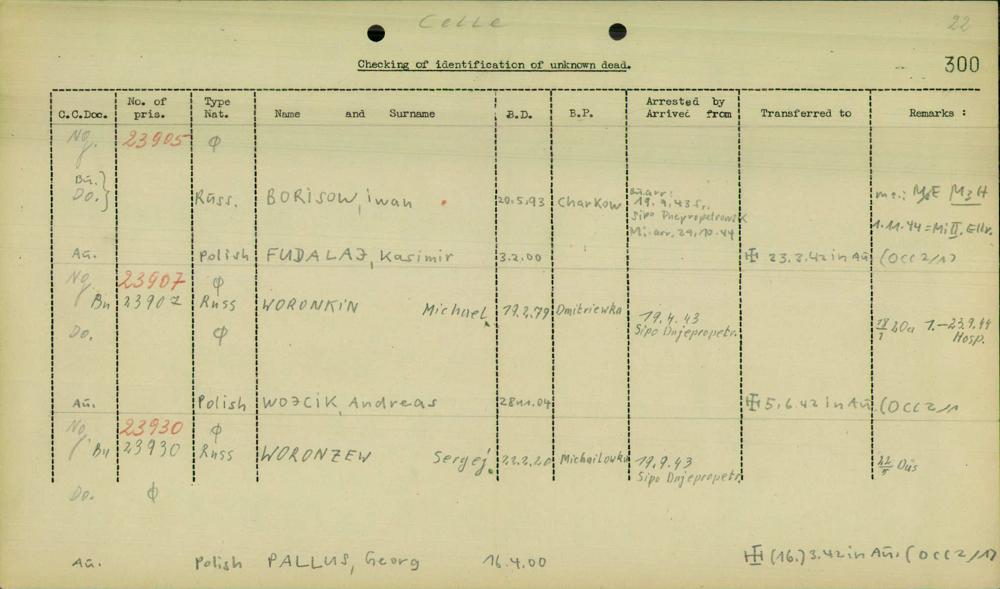 Celle
22
Checking of identification of unknown dead.
300
C.C.Doc. No. of pris. Type Nat. Name and Surname B.D. B.P. Arrested by Arrived from Transferred to Remarks :
Ng. 23905 ϕ
Bu.
Do.} Russ. BORISOW, iwan 20.5.93 Charkow
Bu.arr:
19.9.43 Fr.
Sipo Dnepropetrowsk
Mi.arr. 29.10.44
1.11.44 = Mi II. Ellr.
Au. Polish FUDALAJ, Kasimir 3.2.00 23.3.42 in Au (OCC 2/1)
Ng. 23907 ϕ
Bu 23907 Russ WORONKIN Michael 19.2.79 Dmitriewka 19.4.43
Sipo Dnjepropetr.
Do. ϕ 1.–23.9.44
Hosp.
Au. Polish WOJCIK, Andreas 28 11.04 5.6.42 in Au. (OCC 2/1
Ng. 23930 ϕ
Bu 23930 Russ WORONZEW Sergej 22.2.20 Michailowka 19.9.43
Sipo Dnjepropetr.
22/5 Düs
Do. ϕ
Au. Polish PALLUS, Georg 16.4.00 (16.) 3.42 in Au. (OCC 2/1)